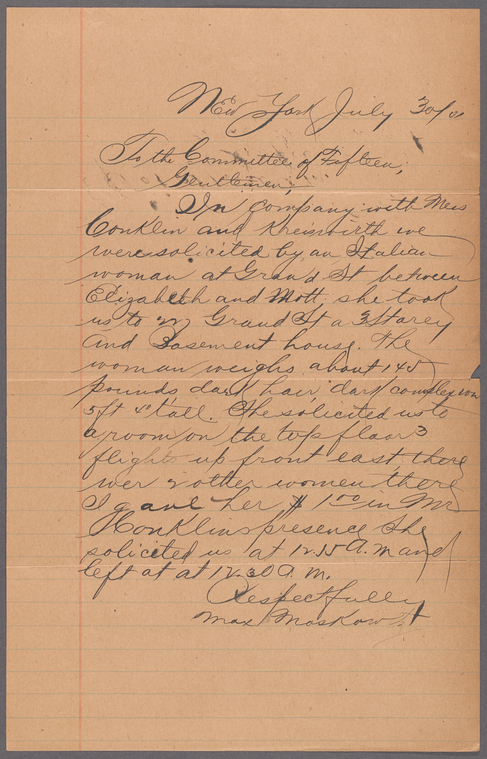 New York July 30/01
To the Committee of Fifteen,
Gentlemen,
In company with Mess
Conklin and Kreiswirth we
were solicited by an Italian
woman at Grand St between
Elizabeth and Mott she took
us to Grand St a 3 Storey
and Basement house. The
woman weighs about 145
pounds dark hair dark complexion
5ft tall. She solicited us to
a room on the top floor 3
flights up front east there
wer 2 other women there
I gave her $ 1 00 in Mr
Konklins presence She
solicited us at 12.15 A.M and
left at at 12.30 A.M.
Respectfully
Max Moskowitz